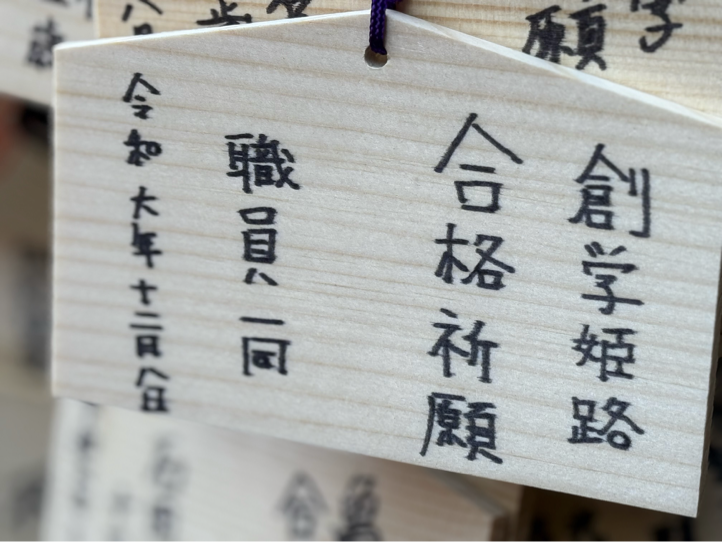 学
願
創学姫路
合格祈願
職員一同
令和六年十二月八日